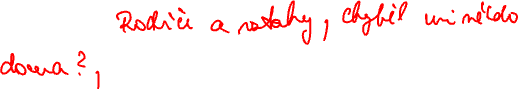 Rodiče a vztahy, chyběl mi někdo
doma?,